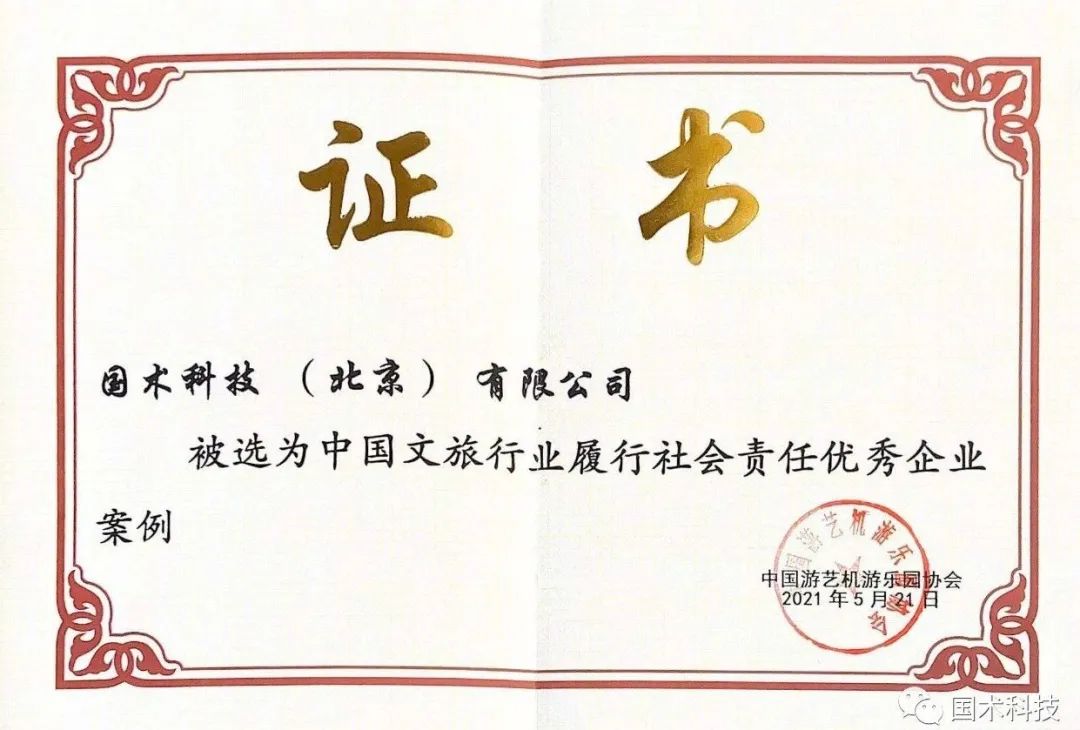 证 书
国术科技（北京）有限公司
被选为中国文旅行业履行社会责任优秀企业
案例
中国游艺机游乐园协会
2021年5月21日
国术科技